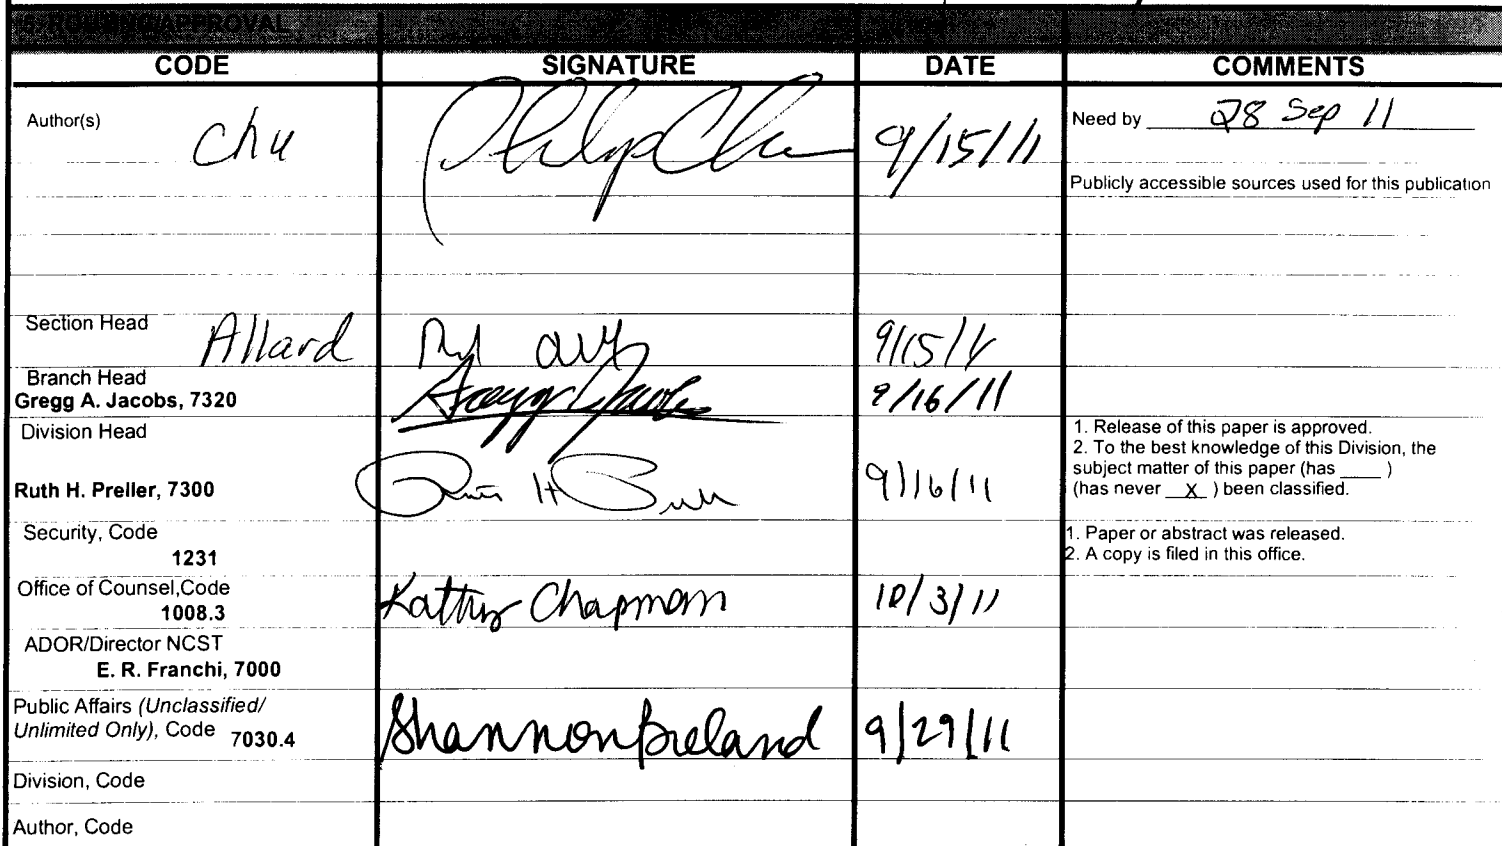 ROUTING/APPROVAL
CODE SIGNATURE DATE COMMENTS
Author(s) Chu Philip Chu 9/15/11 Need by 28 Sep 11
Publicly accessible sources used for this publication
Section Head Allard 9/15/11
Branch Head
Gregg A. Jacobs, 7320 Gregg A. Jacobs 9/16/11
Division Head
1. Release of this paper is approved.
2. To the best knowledge of this Division, the
subject matter of this paper (has ____ )
(has never X ) been classified.
Ruth H. Preller, 7300 Ruth H 9/16/11
Security, Code
1231
1. Paper or abstract was released.
2. A copy is filed in this office.
Office of Counsel,Code
1008.3 Kathy Chapman 10/3/11
ADOR/Director NCST
E. R. Franchi, 7000
Public Affairs (Unclassified/
Unlimited Only), Code 7030.4 Shannon Breland 9/29/11
Division, Code
Author, Code